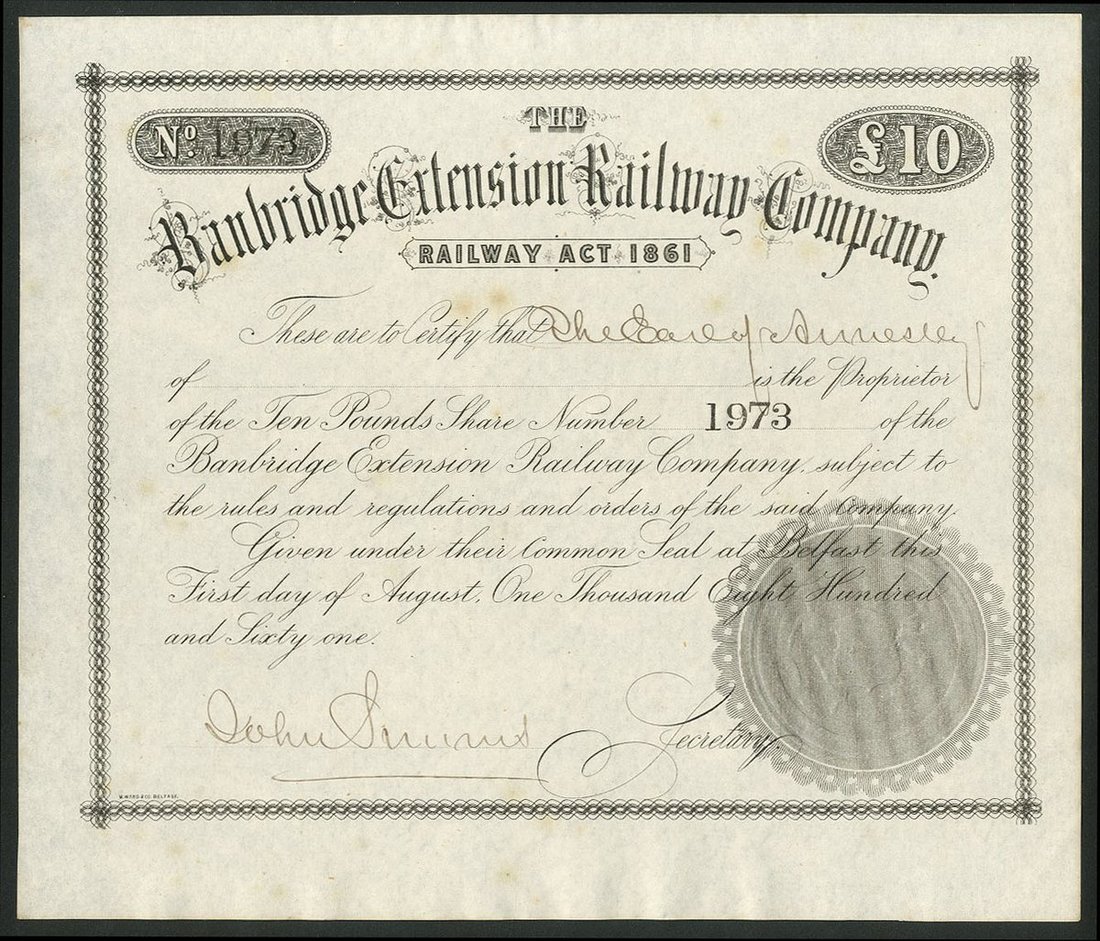 No. 1973
THE
£10
Banbridge Extension Railway Company.
RAILWAY ACT 1861
These are to Certify that The Earl of Annesley
of is the Proprietor
of the Ten Pounds Share Number 1973 of the
Banbridge Extension Railway Company, subject to
the rules and regulations and orders of the said Company.
Given under their Common Seal at Belfast this
First day of August, One Thousand Eight Hundred
and Sixty one.
John Smims
Secretary.
M. WARD & CO. BELFAST.